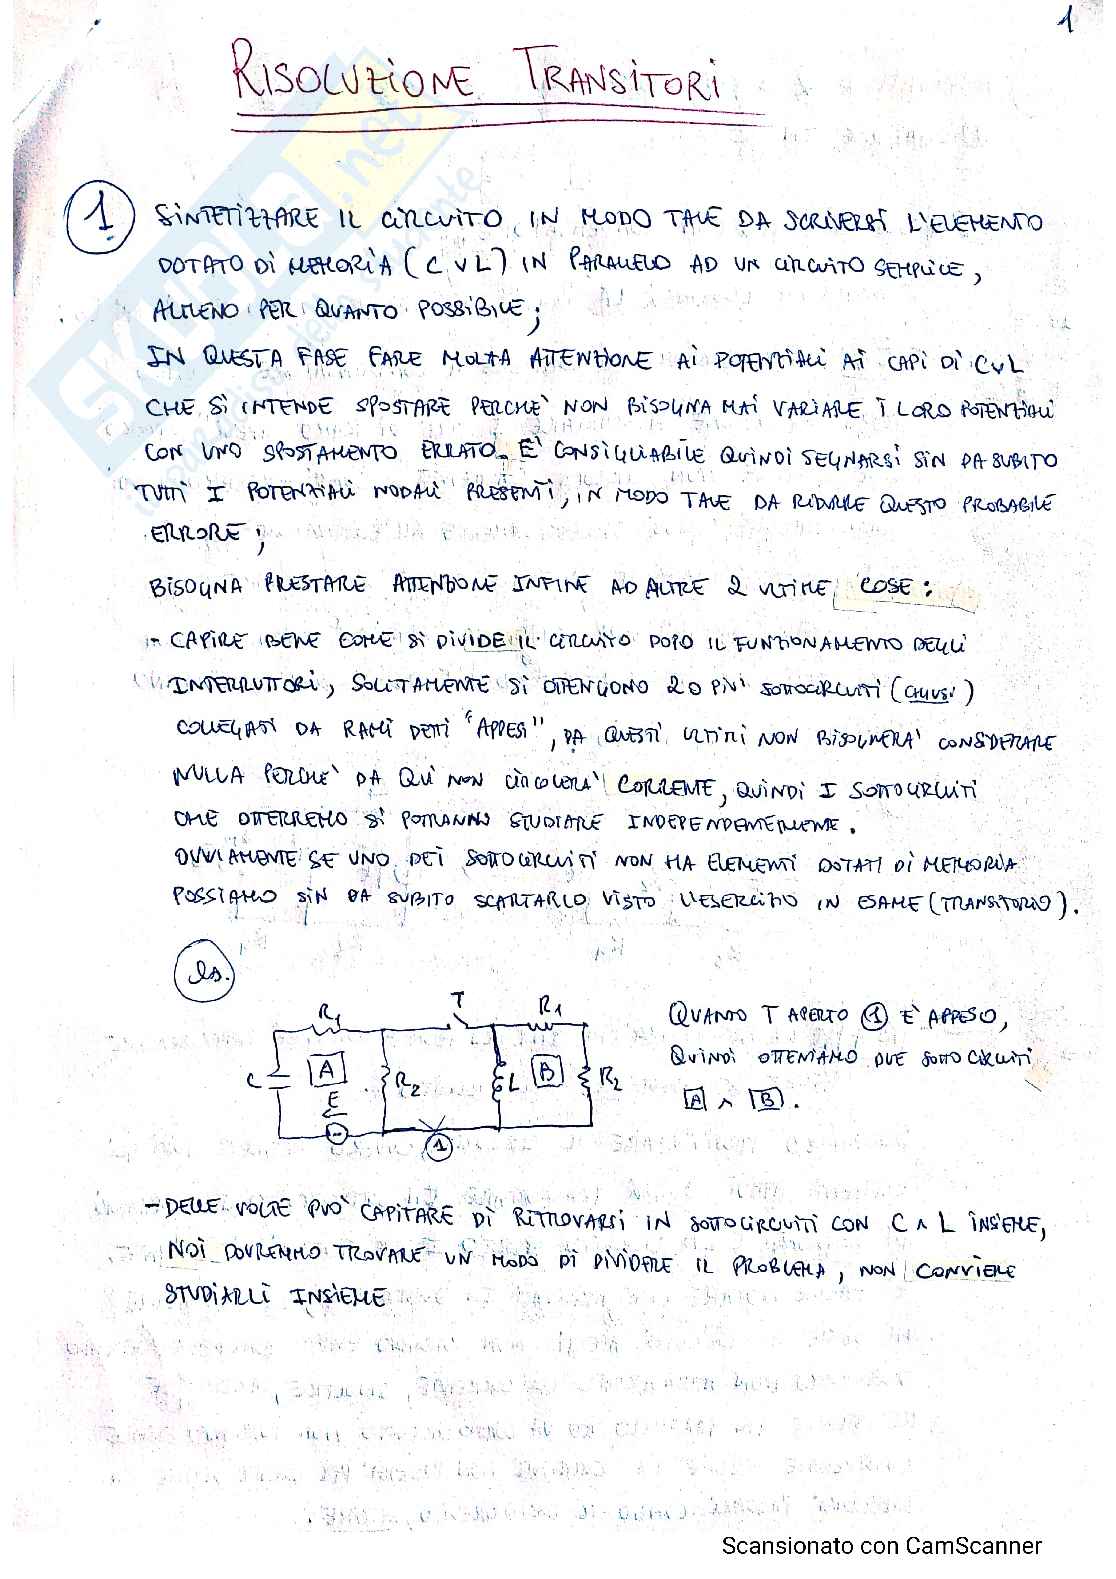 1
RISOLUZIONE TRANSITORI
1 SINTETIZZARE IL CIRCUITO, IN MODO TALE DA SCRIVERSI L'ELEMENTO
DOTATO DI MEMORIA (C V L) IN PARALLELO AD UN CIRCUITO SEMPLICE,
ALMENO PER QUANTO POSSIBILE;
IN QUESTA FASE FARE MOLTA ATTENZIONE AI POTENZIALI AI CAPI DI C V L
CHE SI INTENDE SPOSTARE PERCHE' NON BISOGNA MAI VARIARE I LORO POTENZIALI
CON UNO SPOSTAMENTO ERRATO. E' CONSIGLIABILE QUINDI SEGNARSI SIN DA SUBITO
TUTTI I POTENZIALI NODALI PRESENTI, IN MODO TALE DA RIDURRE QUESTO PROBABILE
ERRORE;
BISOGNA PRESTARE ATTENZIONE INFINE AD ALTRE 2 ULTIME COSE:
- CAPIRE BENE COME SI DIVIDE IL CIRCUITO DOPO IL FUNZIONAMENTO DEGLI
INTERRUTTORI, SOLITAMENTE SI OTTENGONO 2 O PIU' SOTTOCIRCUITI (CHIUSI)
COLLEGATI DA RAMI DETTI "APPESI", DA QUESTI ULTIMI NON BISOGNERA' CONSIDERARE
NULLA PERCHE' DA QUI NON CIRCOLERA' CORRENTE, QUINDI I SOTTOCIRCUITI
CHE OTTERREMO SI POTRANNO STUDIARE INDEPENDENTEMENTE.
OVVIAMENTE SE UNO DEI SOTTOCIRCUITI NON HA ELEMENTI DOTATI DI MEMORIA
POSSIAMO SIN DA SUBITO SCARTARLO VISTO L'ESERCIZIO IN ESAME (TRANSITORIO).
es.
R1 T R1
C A R2 L B R2
E
1
QUANTO T APERTO 1 E' APPESO,
QUINDI OTTENIAMO DUE SOTTOCIRCUITI
A ∧ B.
- DELLE VOLTE PUO' CAPITARE DI RITROVARSI IN SOTTOCIRCUITI CON C ∧ L INSIEME,
NOI DOVREMMO TROVARE UN MODO DI DIVIDERE IL PROBLEMA, NON CONVIENE
STUDIARLI INSIEME
Scansionato con CamScanner